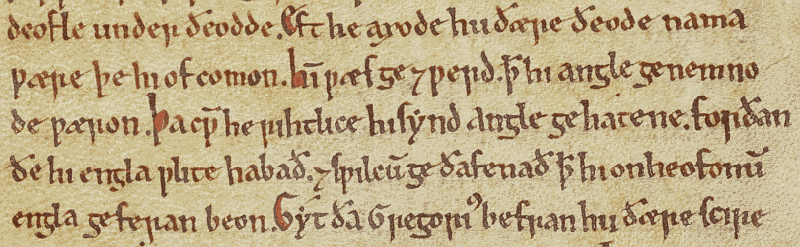 deofle under ðeodde. Eft he axode hu ðære ðeode nama
ƿære þe hi of comon. hī ƿæs ge⁊ƿerd. ꝥ hi angle genemno
de ƿæron. Þa cƿ̄ he rihtlice hi synd angle gehatene. forðan
ðe hi engla ƿlite habbað. ⁊ sƿilcū gedafenað ꝥ hi on heofonū
engla geferan beon. Gyt ða Gregoriꝰ befran hu ðære scire